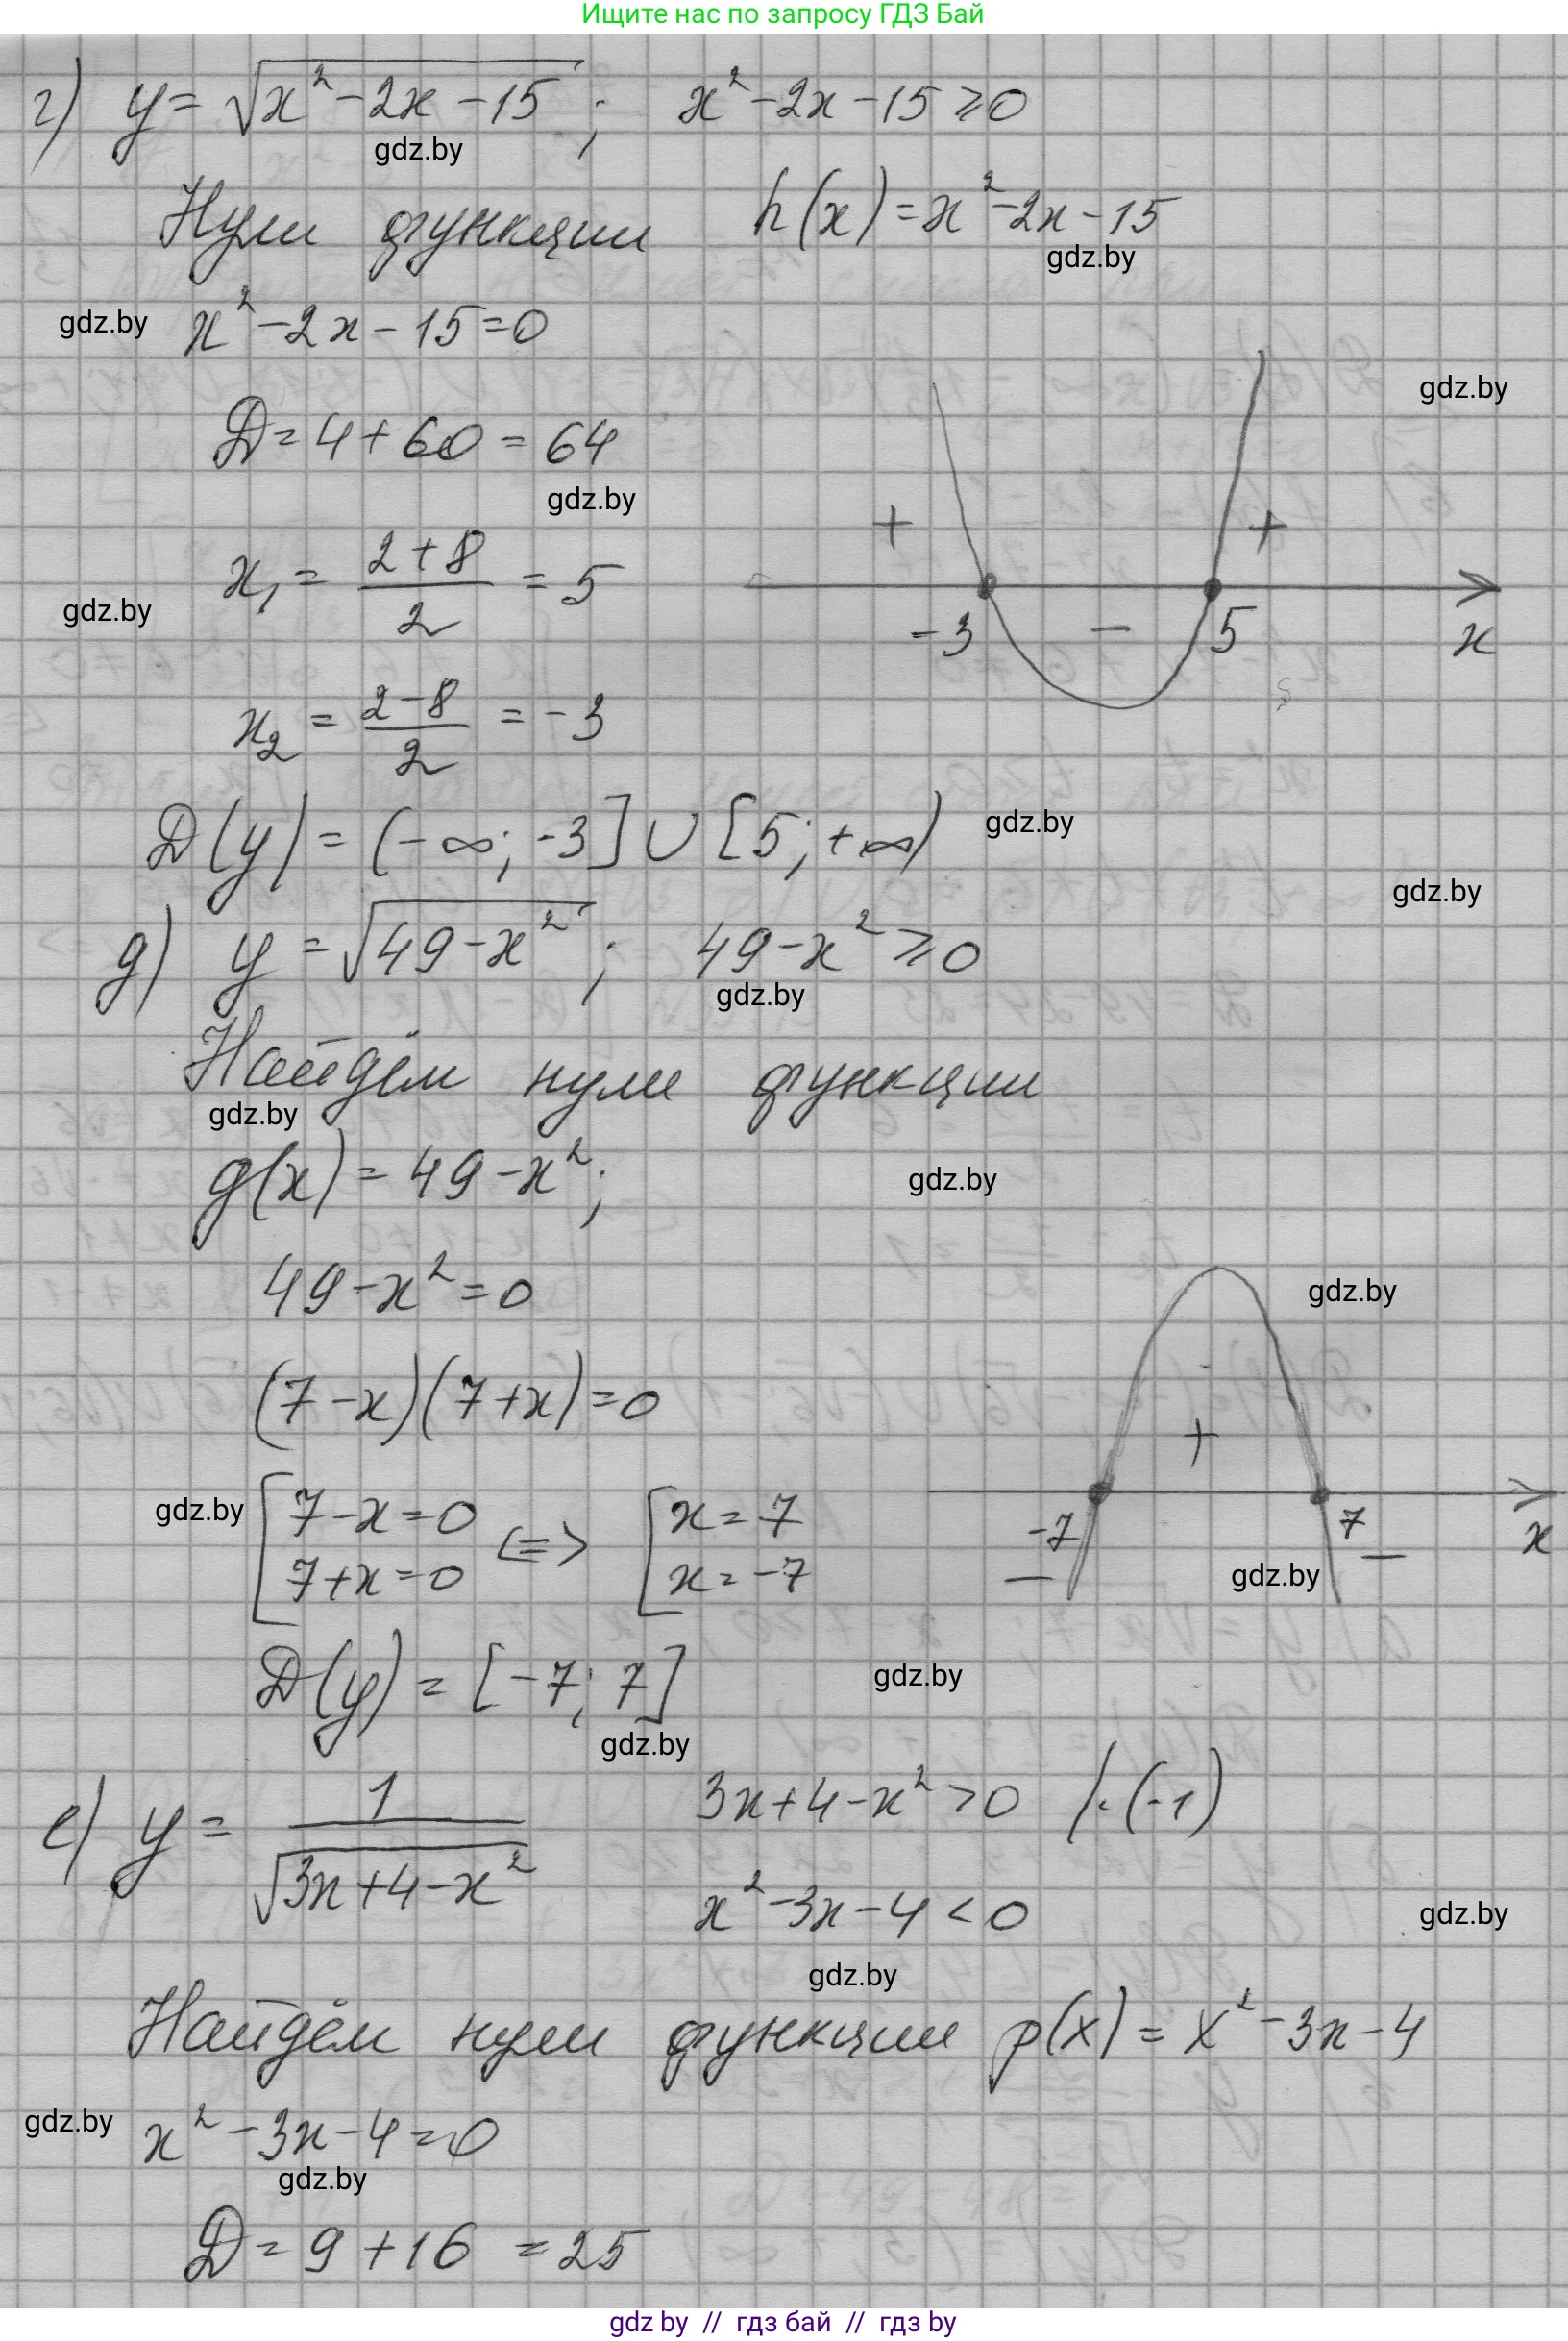 Ищите нас по запросу ГДЗ Бай
г) y = √(x² - 2x - 15) ; x² - 2x - 15 ≥ 0
gdz.by
Нули функции h(x) = x² - 2x - 15
gdz.by
gdz.by x² - 2x - 15 = 0
gdz.by
D = 4 + 60 = 64
gdz.by
+ +
x₁ = (2 + 8)/2 = 5
gdz.by
-3 - 5 x
x₂ = (2 - 8)/2 = -3
D(y) = (-∞; -3] ∪ [5; +∞) gdz.by
gdz.by
д) y = √(49 - x²) ; 49 - x² ≥ 0
gdz.by
Найдём нули функции
gdz.by
g(x) = 49 - x²;
gdz.by
49 - x² = 0
gdz.by
(7 - x)(7 + x) = 0
+
gdz.by [ 7 - x = 0 <=> [ x = 7
7 + x = 0 x = -7
-7 7 x
- gdz.by -
D(y) = [-7; 7] gdz.by
gdz.by
е) y = 1/√(3x + 4 - x²) 3x + 4 - x² > 0 /·(-1)
x² - 3x - 4 < 0 gdz.by
gdz.by
Найдём нули функции p(x) = x² - 3x - 4
gdz.by x² - 3x - 4 = 0
gdz.by
D = 9 + 16 = 25
gdz by // гдз бай // гдз by